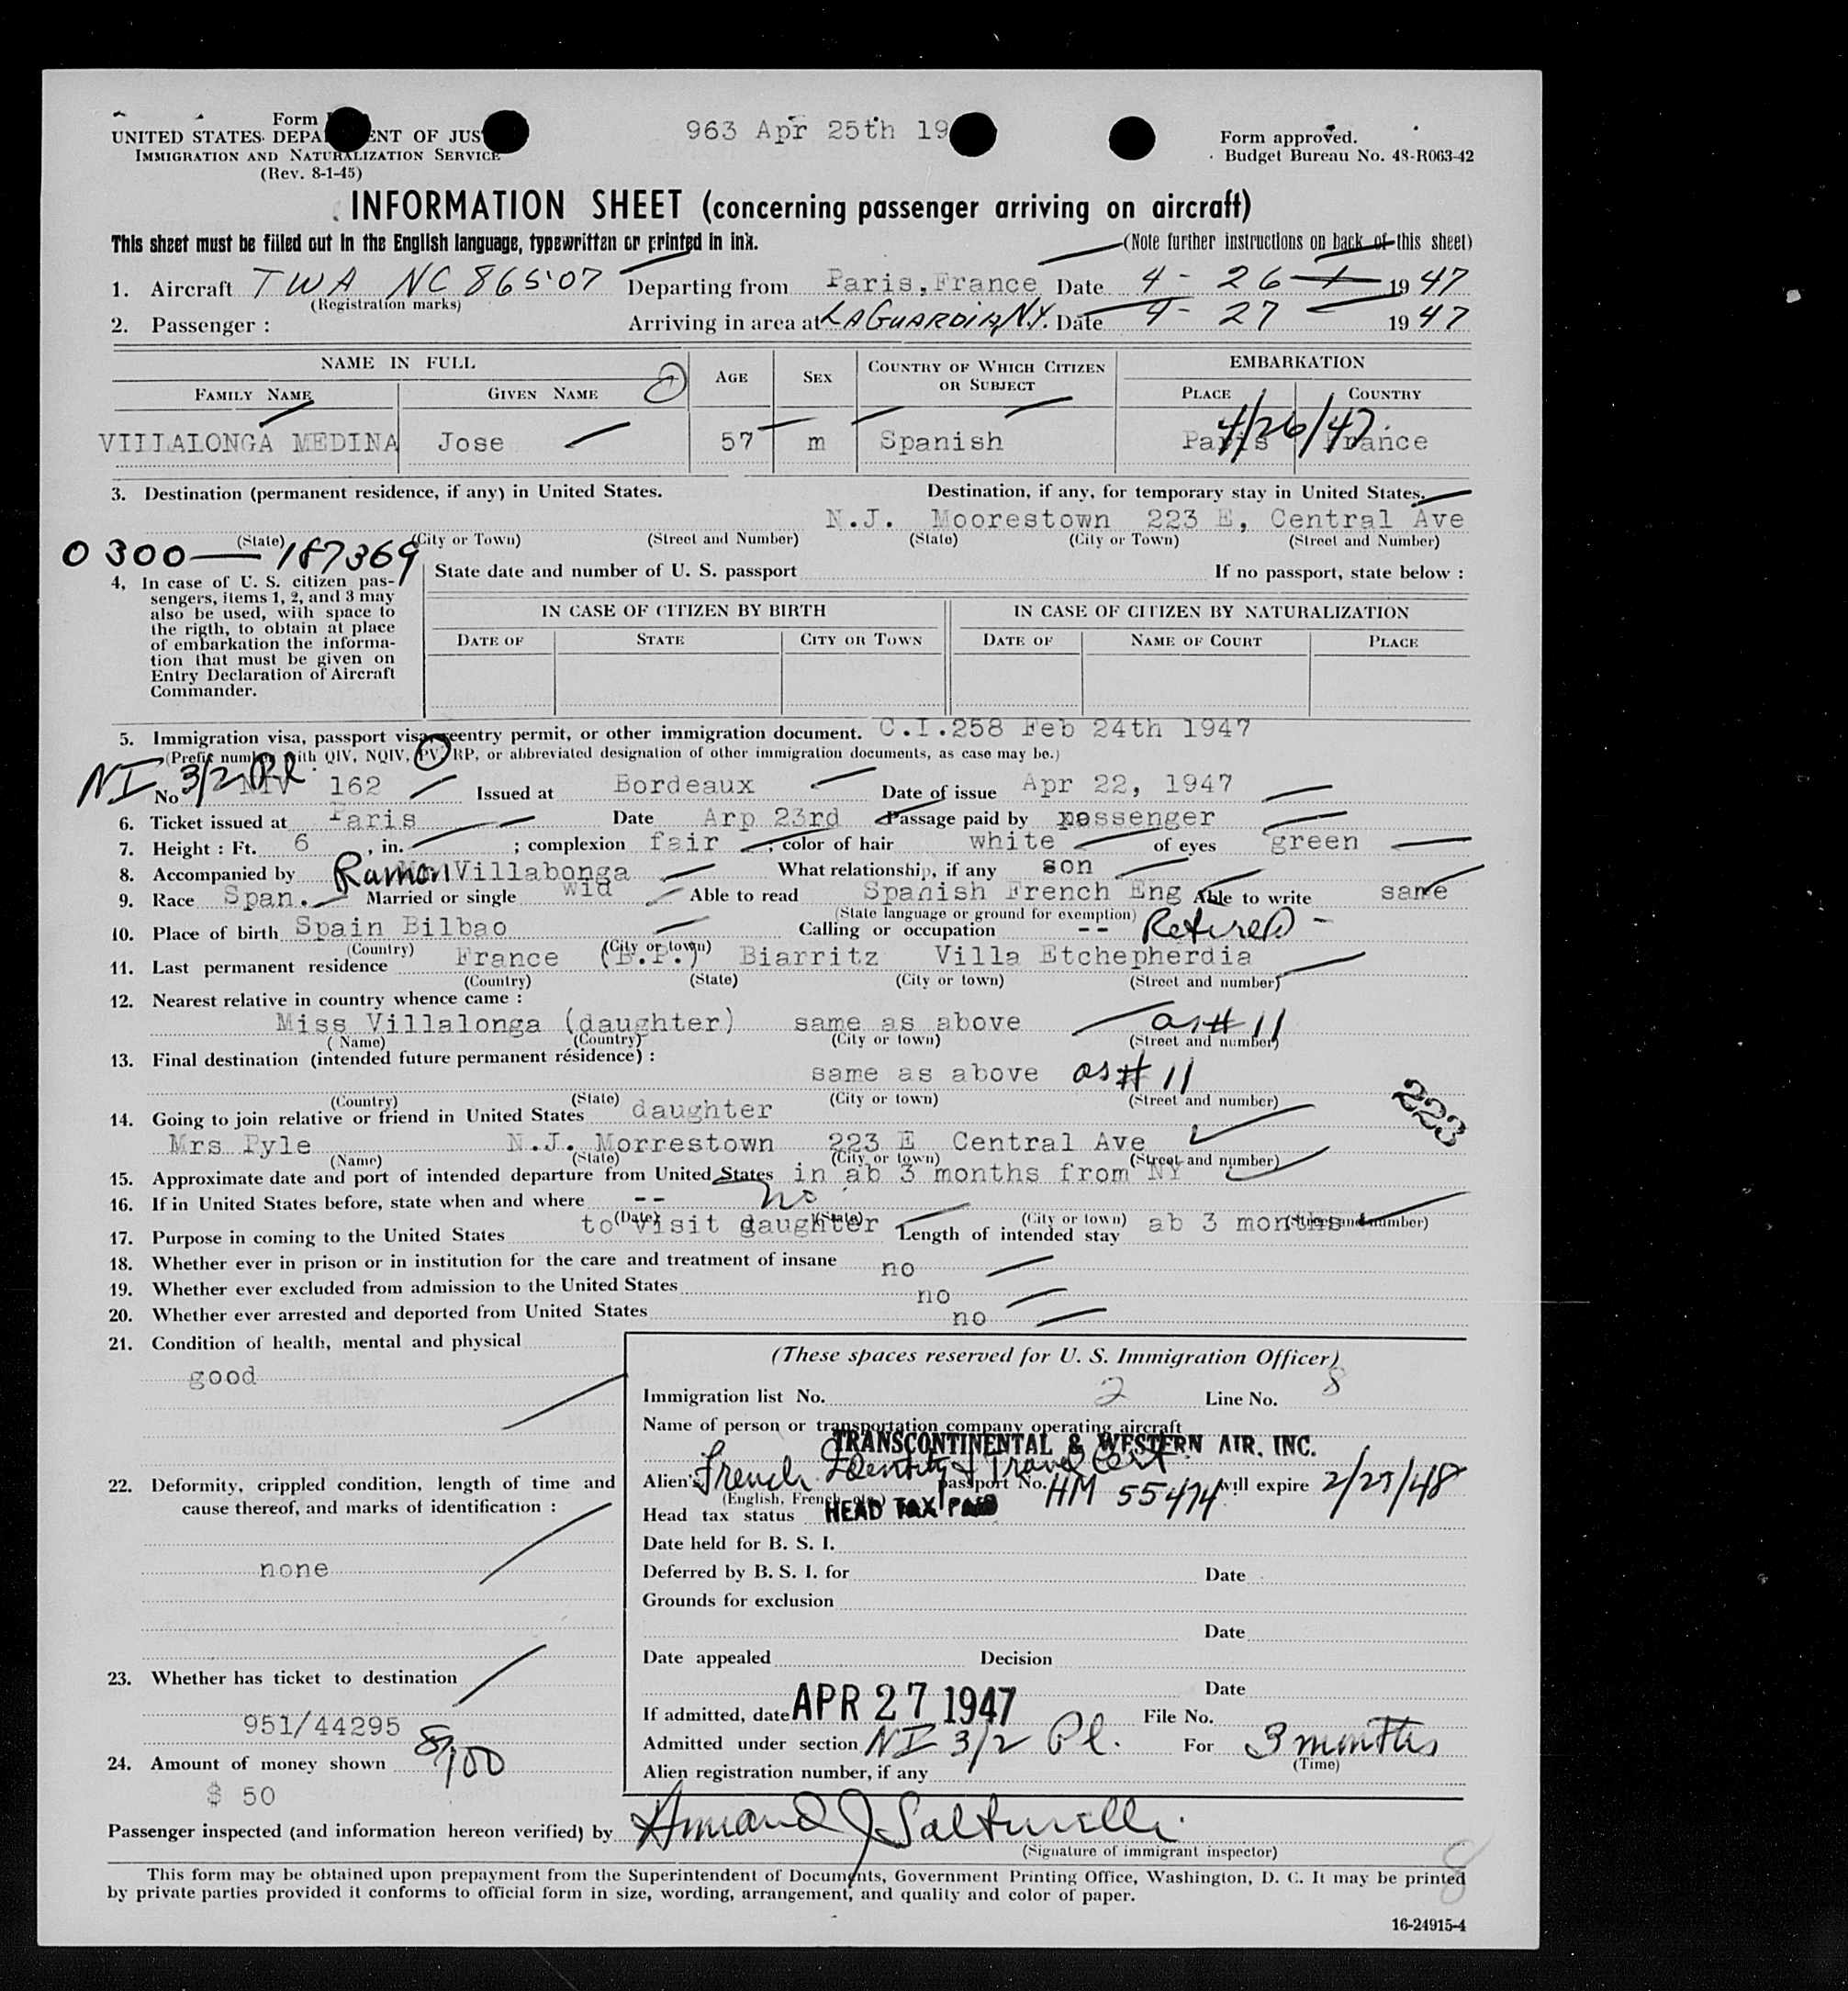 Form
963 Apr 25th 19
Form approved.
UNITED STATES DEPA ENT OF JUS
Budget Bureau No. 48-R063-42
IMMIGRATION AND NATURALIZATION SERVICE
(Rev. 8-1-45)
INFORMATION SHEET (concerning passenger arriving on aircraft)
This sheet must be filled out in the English language, typewritten or printed in ink.
(Note further instructions on back of this sheet)
1. Aircraft TWA NC 86507 Departing from Paris, France Date 4 - 26 1947
(Registration marks)
2. Passenger : Arriving in area at LAGUARDIA, N.Y. Date 4 - 27 1947
NAME IN FULL AGE SEX COUNTRY OF WHICH CITIZEN OR SUBJECT EMBARKATION
FAMILY NAME GIVEN NAME PLACE COUNTRY
4/26/47
VILLALONGA MEDINA Jose 57 m Spanish Paris France
3. Destination (permanent residence, if any) in United States. Destination, if any, for temporary stay in United States.
N.J. Moorestown 223 E, Central Ave
(State) (City or Town) (Street and Number) (State) (City or Town) (Street and Number)
0300 — 187369
4. In case of U. S. citizen pas-
sengers, items 1, 2, and 3 may
also be used, with space to
the rigth, to obtain at place
of embarkation the informa-
tion that must be given on
Entry Declaration of Aircraft
Commander.
State date and number of U. S. passport If no passport, state below :
IN CASE OF CITIZEN BY BIRTH IN CASE OF CITIZEN BY NATURALIZATION
DATE OF STATE CITY OR TOWN DATE OF NAME OF COURT PLACE
5. Immigration visa, passport visa, reentry permit, or other immigration document. C.I.258 Feb 24th 1947
(Prefix number with QIV, NQIV, PV, RP, or abbreviated designation of other immigration documents, as case may be.)
NI 3/2 Pl.
No NIV 162 Issued at Bordeaux Date of issue Apr 22, 1947
6. Ticket issued at Paris Date Arp 23rd Passage paid by passenger
7. Height : Ft. 6 , in. ; complexion fair , color of hair white of eyes green
8. Accompanied by Ramon Villabonga What relationship, if any son
9. Race Span. Married or single wid Able to read Spanish French Eng Able to write same
(State language or ground for exemption)
10. Place of birth Spain Bilbao Calling or occupation -- Retired -
(Country) (City or town)
11. Last permanent residence France (B.P.) Biarritz Villa Etchepherdia
(Country) (State) (City or town) (Street and number)
12. Nearest relative in country whence came :
Miss Villalonga (daughter) same as above as # 11
(Name) (Country) (City or town) (Street and number)
13. Final destination (intended future permanent résidence) :
same as above as # 11
(Country) (State) (City or town) (Street and number)
223
14. Going to join relative or friend in United States daughter
Mrs Pyle N.J. Morrestown 223 E Central Ave
(Name) (State) (City or town) (Street and number)
15. Approximate date and port of intended departure from United States in ab 3 months from NY
16. If in United States before, state when and where -- no
(Date) (State) (City or town) (Street and number)
17. Purpose in coming to the United States to visit daughter Length of intended stay ab 3 months
18. Whether ever in prison or in institution for the care and treatment of insane no
19. Whether ever excluded from admission to the United States no
20. Whether ever arrested and deported from United States no
21. Condition of health, mental and physical
good
22. Deformity, crippled condition, length of time and
cause thereof, and marks of identification :
none
23. Whether has ticket to destination
951/44295
24. Amount of money shown 8/100
$ 50
(These spaces reserved for U. S. Immigration Officer)
Immigration list No. 2 Line No. 8
Name of person or transportation company operating aircraft
TRANSCONTINENTAL & WESTERN AIR, INC.
French Identity & Travel Cert.
Alien's passport No. HM 55474 will expire 2/27/48
(English, French, etc.)
Head tax status HEAD TAX PAID
Date held for B. S. I.
Deferred by B. S. I. for Date
Grounds for exclusion
Date
Date appealed Decision
Date
If admitted, date APR 27 1947 File No.
Admitted under section NI 3/2 Pl. For 3 months
(Time)
Alien registration number, if any
Passenger inspected (and information hereon verified) by Armand J
(Signature of immigrant inspector)
8
This form may be obtained upon prepayment from the Superintendent of Documents, Government Printing Office, Washington, D. C. It may be printed
by private parties provided it conforms to official form in size, wording, arrangement, and quality and color of paper.
16-24915-4